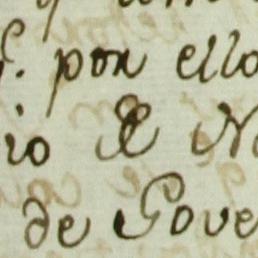 por ello
io & N
de Gove